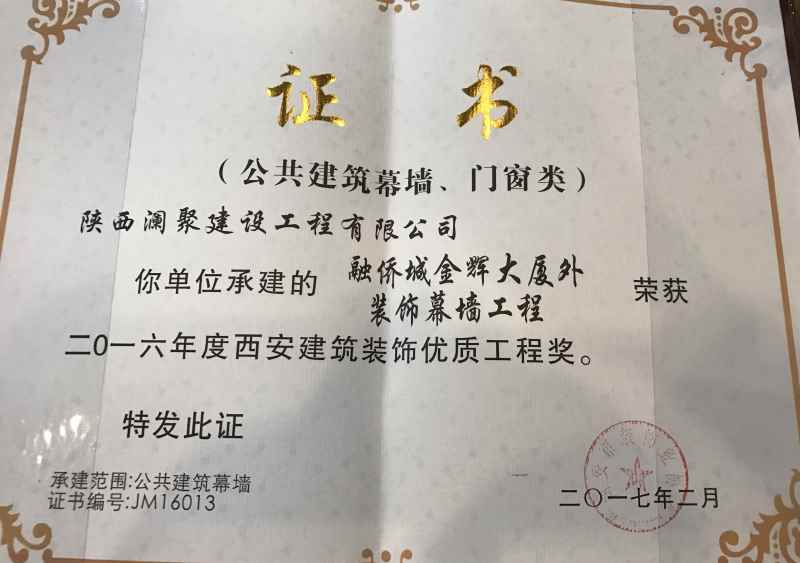 证书
（公共建筑幕墙、门窗类）
陕西澜聚建设工程有限公司
你单位承建的 融侨城金辉大厦外装饰幕墙工程 荣获
二0一六年度西安建筑装饰优质工程奖。
特发此证
承建范围:公共建筑幕墙
证书编号:JM16013
二〇一七年二月